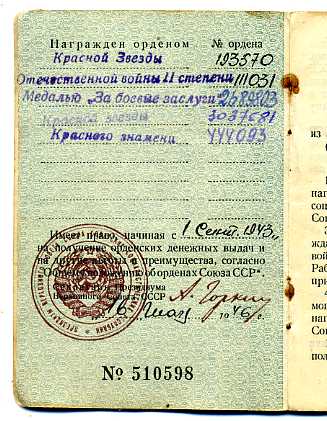 Награжден орденом № ордена
Красной Звезды 193570
Отечественной войны II степени 111031
Медалью „За боевые заслуги"
Красной звезды 3037581
Красного знамени 444093
Имеет право, начиная с 1 Сент. 1943 г.
на получение орденских денежных выдач и
на другие льготы и преимущества, согласно
"Общего положения об орденах Союза ССР".
Секретарь Президиума
Верховного Совета СССР А. Горкин
1946 г.
№ 510598
из
наг
соц
Союз
жда
вой
Раб
при
наг
Сою
пол